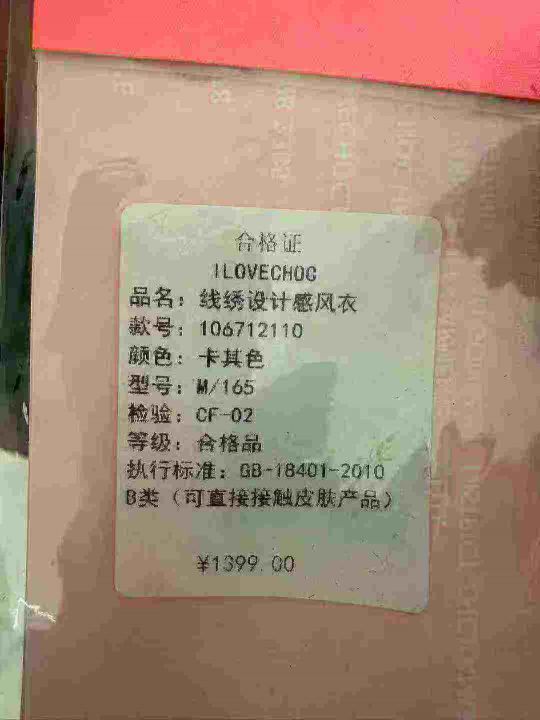 合格证
ILOVECHOC
品名：线绣设计感风衣
款号：106712110
颜色：卡其色
型号：M/165
检验：CF-02
等级：合格品
执行标准：GB-18401-2010
B类（可直接接触皮肤产品）
¥1399.00